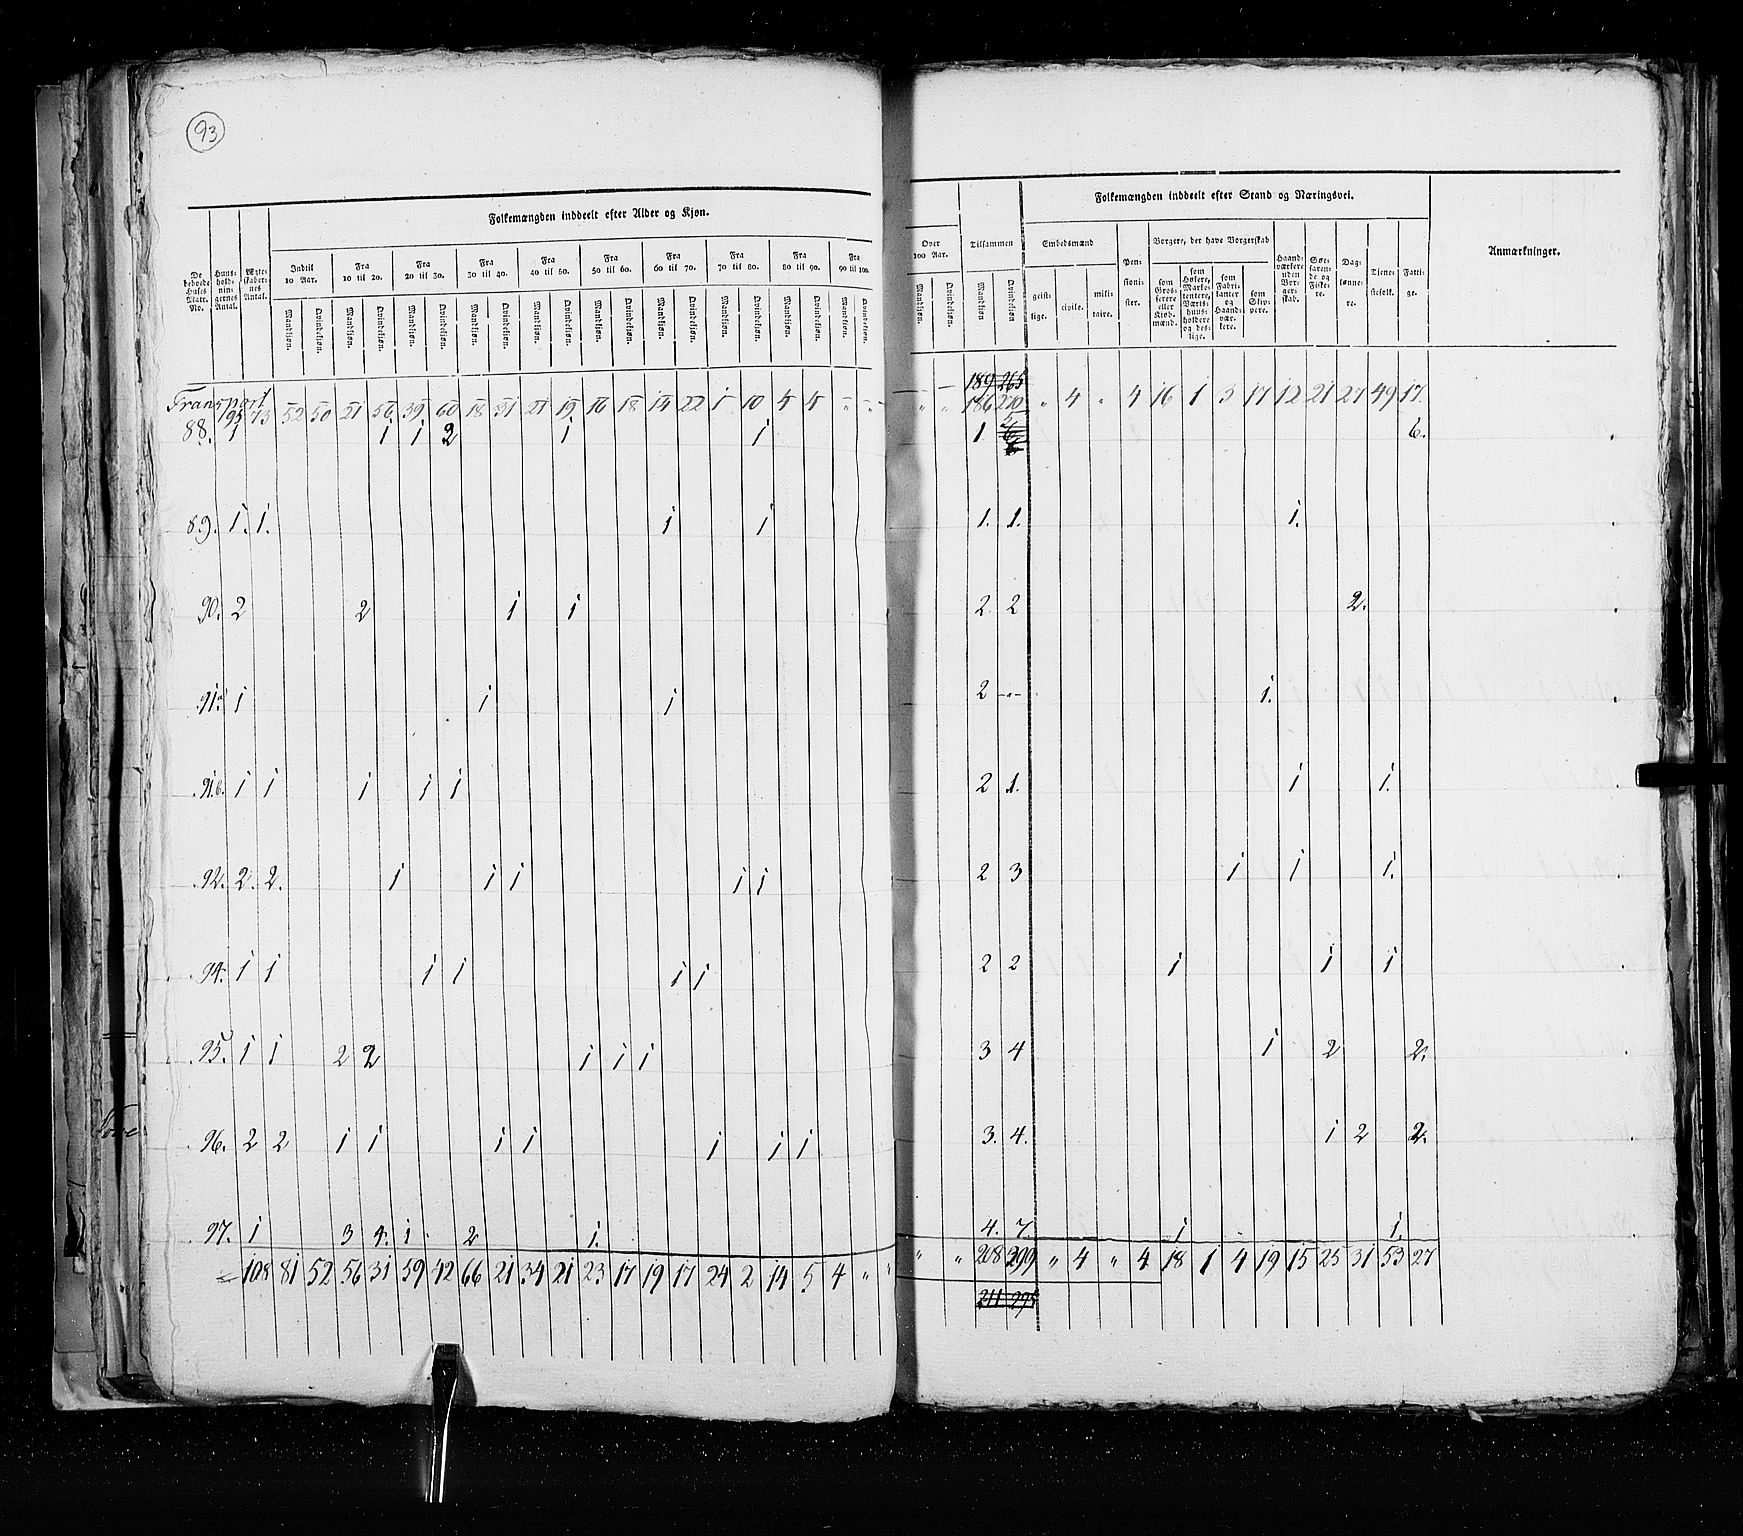 93
Folkemængden inddeelt efter Alder og Kjøn.
De beboede Huses Matr. No.
Huusholdningernes Antal.
Ægteskabernes Antal.
Indtil 10 Aar.
Fra 10 til 20.
Fra 20 til 30.
Fra 30 til 40.
Fra 40 til 50.
Fra 50 til 60.
Fra 60 til 70.
Fra 70 til 80.
Fra 80 til 90.
Fra 90 til 100.
Mandkjøn. Qvindekjøn. Mandkjøn. Qvindekjøn. Mandkjøn. Qvindekjøn. Mandkjøn. Qvindekjøn. Mandkjøn. Qvindekjøn. Mandkjøn. Qvindekjøn. Mandkjøn. Qvindekjøn. Mandkjøn. Qvindekjøn. Mandkjøn. Qvindekjøn. Mandkjøn. Qvindekjøn.
Over 100 Aar.
Mandkjøn. Qvindekjøn.
Tilsammen
Mandkjøn Qvindekjøn
Folkemængden inddeelt efter Stand og Næringsvei.
Embedsmænd
geistlige. civile. militaire.
Pensionister.
Borgere, der have Borgerskab
som Grosserere eller Kjøbmænd.
som Høkere, Marketentere, Værtshuusholdere og deslige.
som Fabrikanter og Haandværkere.
som Skippere.
Haandværkere uden Borgerskab.
Søefarende og Fiskere.
Daglønnere.
Tjenestefolk.
Fattige.
Anmærkninger.
189 265
Transport 73 52 50 51 56 39 60 18 31 21 19 16 18 14 22 1 10 4 4 " " - - 186 270 " 4 " 4 16 1 3 17 12 21 27 49 17.
88. 1 1 1 2 1 1 1 5 6.
89. 1. 1. 1 1 1. 1. 1.
90. 2 2 1 1 2 2 2.
91. 1 1 1 2 -"- 1.
91.b. 1 1 1 1 1 2 1. 1 1.
92. 2. 2. 1 1 1 1 1 2 3 1 1 1.
94. 1 1 1 1 1 1 2 2 1 1 1
95. 1 1 2 2 1 1 1 3 4 1 2 2.
96. 2 2 1 1 1 1 1 1 1 3. 4. 1 2 2.
97. 1 3 4. 1 2 1. 4. 7. 1 1.
108 81 52 56 31 59 42 66 21 34 21 23 17 19 17 24 2 14 5 4 " " " " 208 299 " 4 " 4 18 1 4 19 15 25 31 53 27
211 295